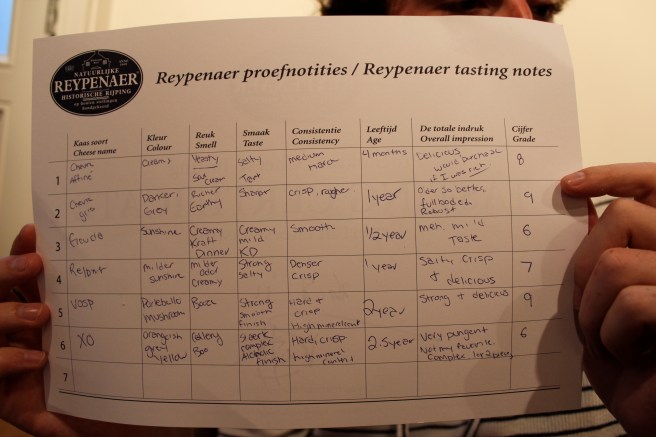 NATUURLIJKE
REYPENAER
HISTORISCHE RIJPING
op houten stellingen
handgekeerd
Reypenaer proefnotities / Reypenaer tasting notes
Kaas soort
Cheese name
Kleur
Colour
Reuk
Smell
Smaak
Taste
Consistentie
Consistency
Leeftijd
Age
De totale indruk
Overall impression
Cijfer
Grade
1
Chevre
Affiné
Creamy
Yeasty
Sour Cream
Salty
Tart
medium
Hard
4 months
Delicious
would purchase
if I was rich
8
2
Chevre
gris
Darker,
Grey
Richer
Earthy
Sharper
crisp, rougher
1 year
Older so better,
full bodied,
Robust
9
3
Gouda
Sunshine
Creamy
Kraft
Dinner
Creamy
mild
KD
Smooth
1/2 year
meh, mild
Taste
6
4
milder
sunshine
milder
odor
Creamy
Strong
Salty
Denser
crisp
1 year
Salty, crisp
+ delicious
7
5
VSOP
Portobello
mushroom
Strong
smooth
finish
Hard +
crisp
High mineral cont
2 year
Strong + delicious
9
6
XO
orangeish
grey
yellow
complex
Alcoholic
finish
Hard, crisp
high mineral
content
2.5 year
Very pungent
Not my favorite.
Complex.
6
7